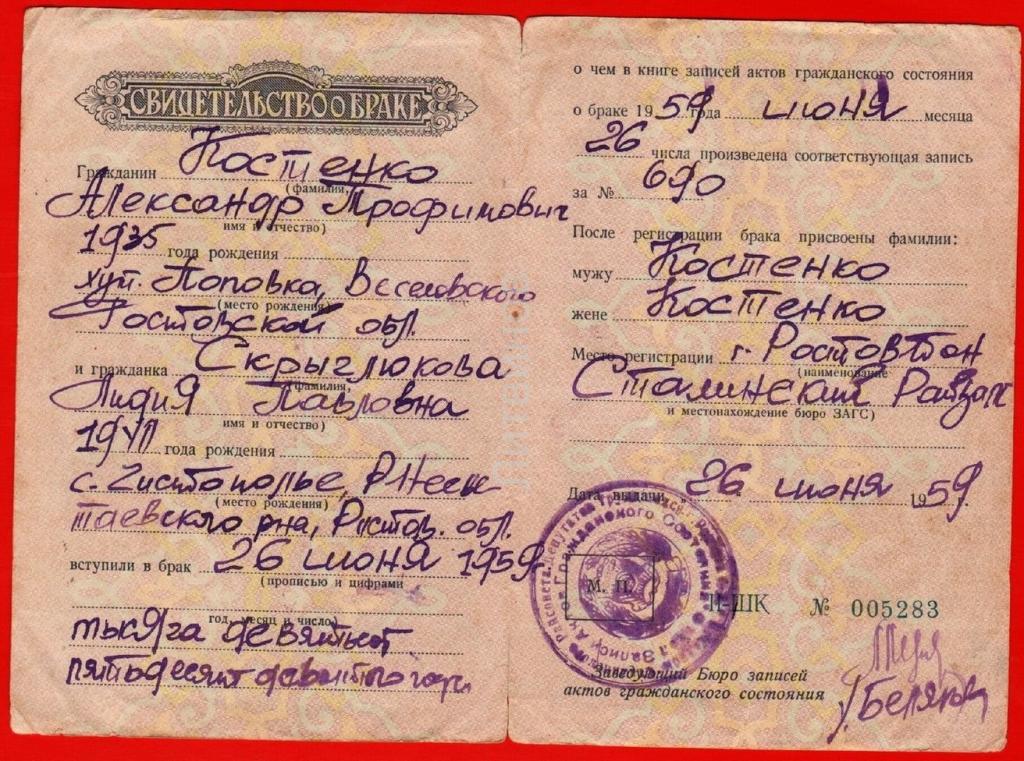 СВИДЕТЕЛЬСТВО О БРАКЕ
Гражданин Костенко
(фамилия,
Александр Трофимович
имя и отчество)
1935 года рождения
хут. Поповка, Веселовского
(место рождения)
Ростовской обл.
и гражданка Скрыглюкова
(фамилия,
Лидия Павловна
имя и отчество)
года рождения
с.
(место рождения)
таевского рна, Ростов. обл.
вступили в брак 26 июня 1959г.
(прописью и цифрами
год, месяц и число)
тысяча девятьсот
пятьдесят девятого года
о чем в книге записей актов гражданского состояния
о браке 1959 года июня месяца
26 числа произведена соответствующая запись
за № 690
После регистрации брака присвоены фамилии:
мужу Костенко
жене Костенко
Место регистрации г. Ростов Дон
(наименование
Сталинский Райзагс
и местонахождение бюро ЗАГС)
Дата выдачи „ 26 июня 1959г.
М. П.
II-ШК № 005283
Заведующий Бюро записей
актов гражданского состояния